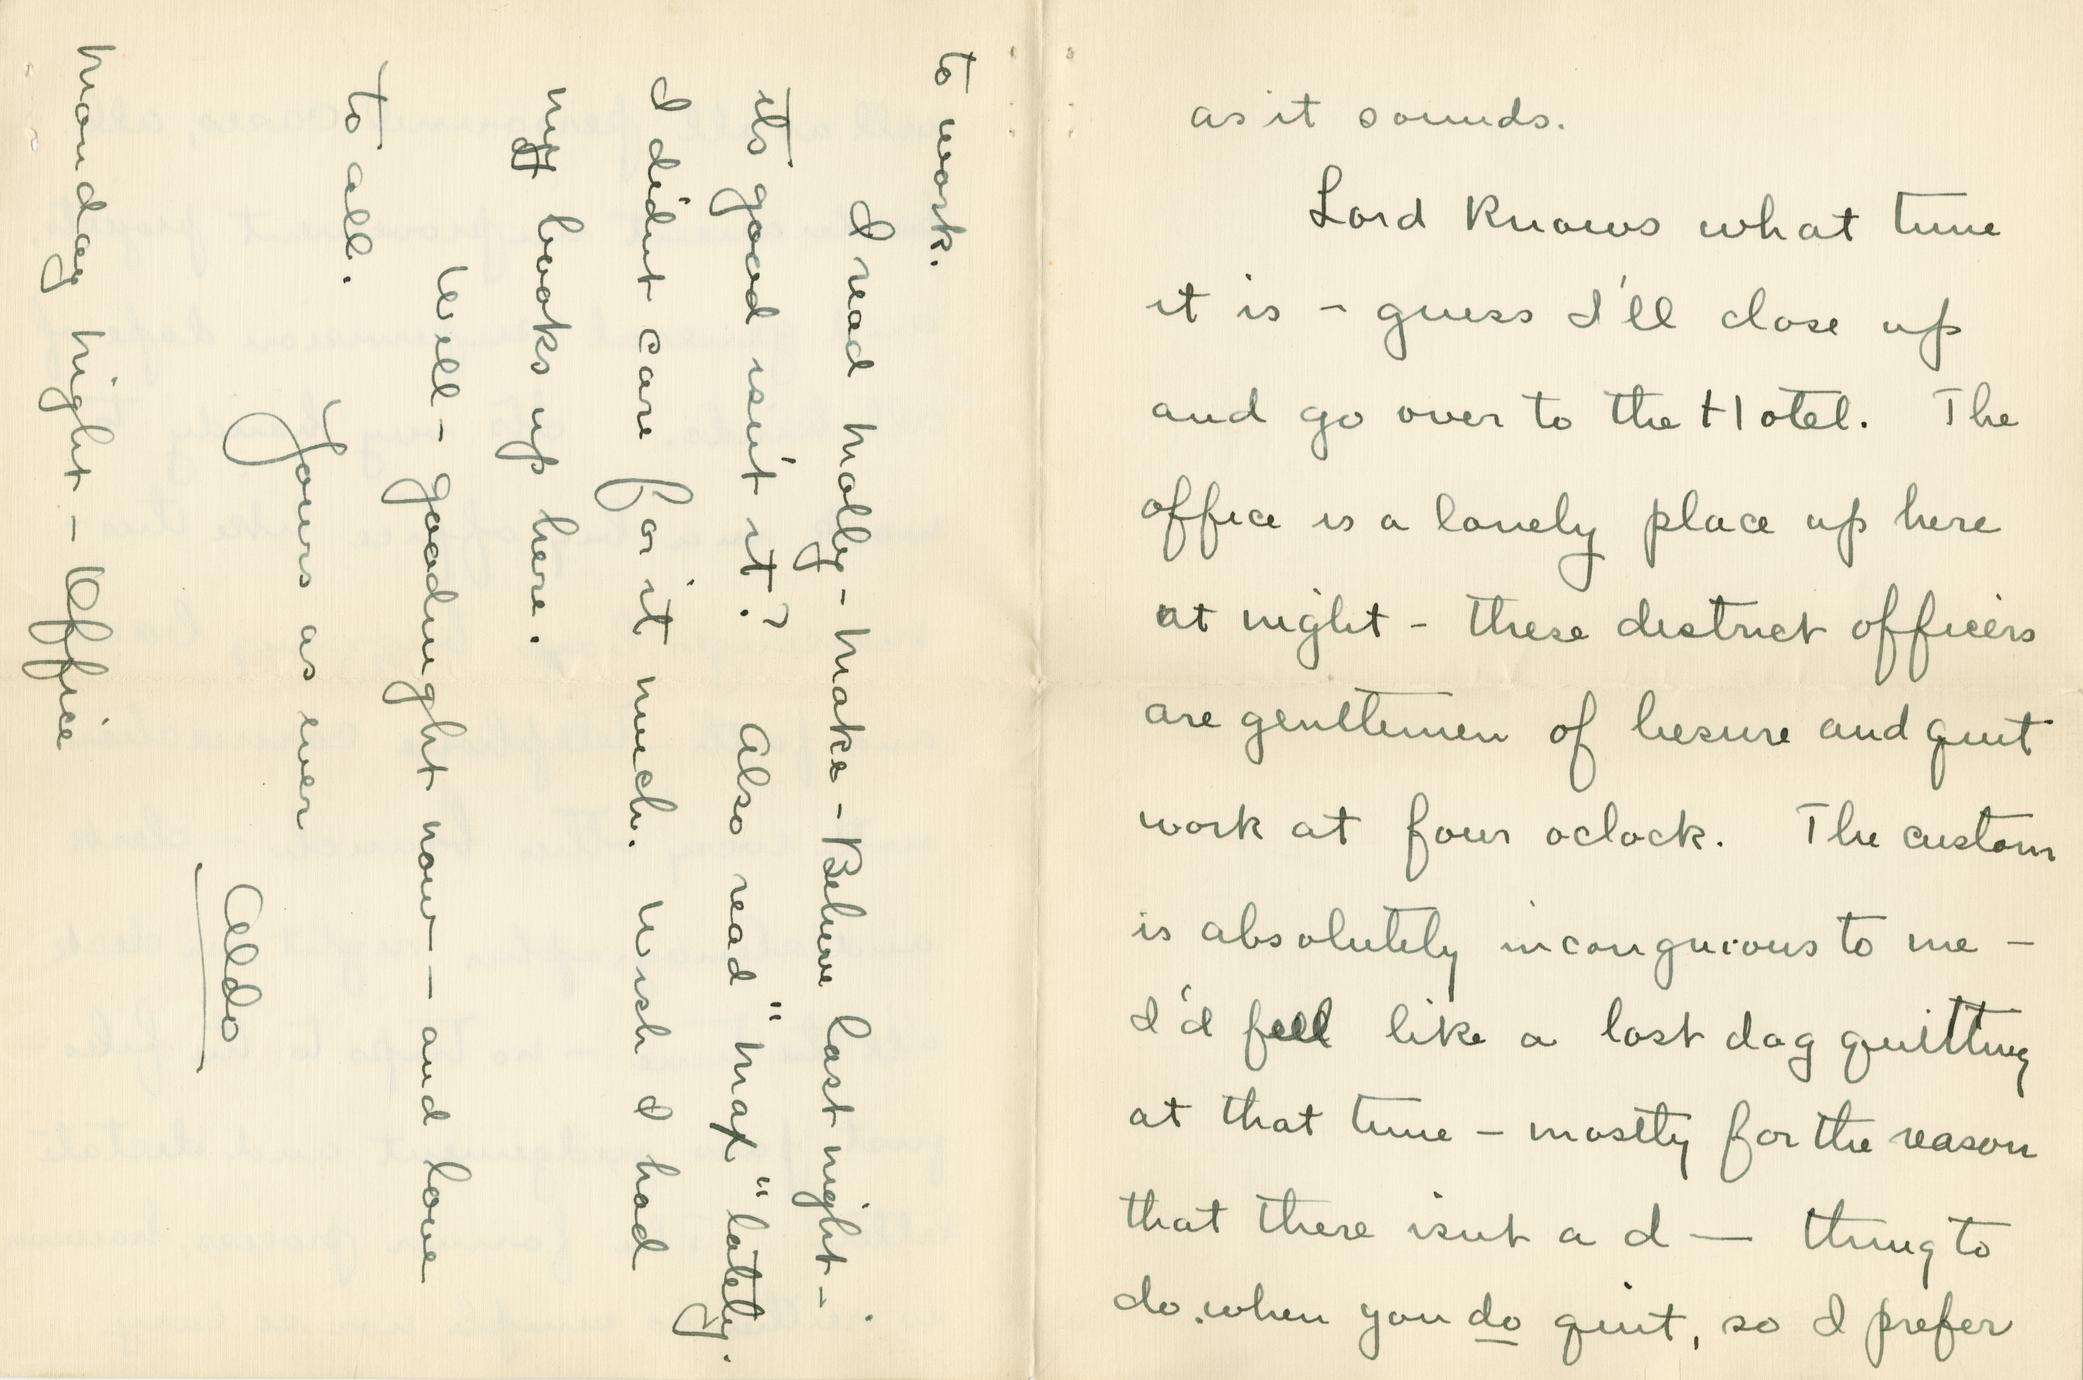 as it sounds.
Lord Knows what time
it is - guess I'll close up
and go over to the Hotel. The
office is a lonely place up here
at night - these district officers
are genltemen of liesure and quit
work at four oclock. The custom
is absolutely incongruous to me -
I'd feel like a lost dog quitting
at that time - mostly for the reason
that there isnt a d— thing to
do when you do quit, so I prefer
to work.
I read Molly-Make-Believe last night -
its good isn't it? Also read "Max" lately.
I didnt care for it much. Wish I had
my books up here.
Well - goodnight now - and love
to all.
Yours as ever
Aldo
Monday Night - Office